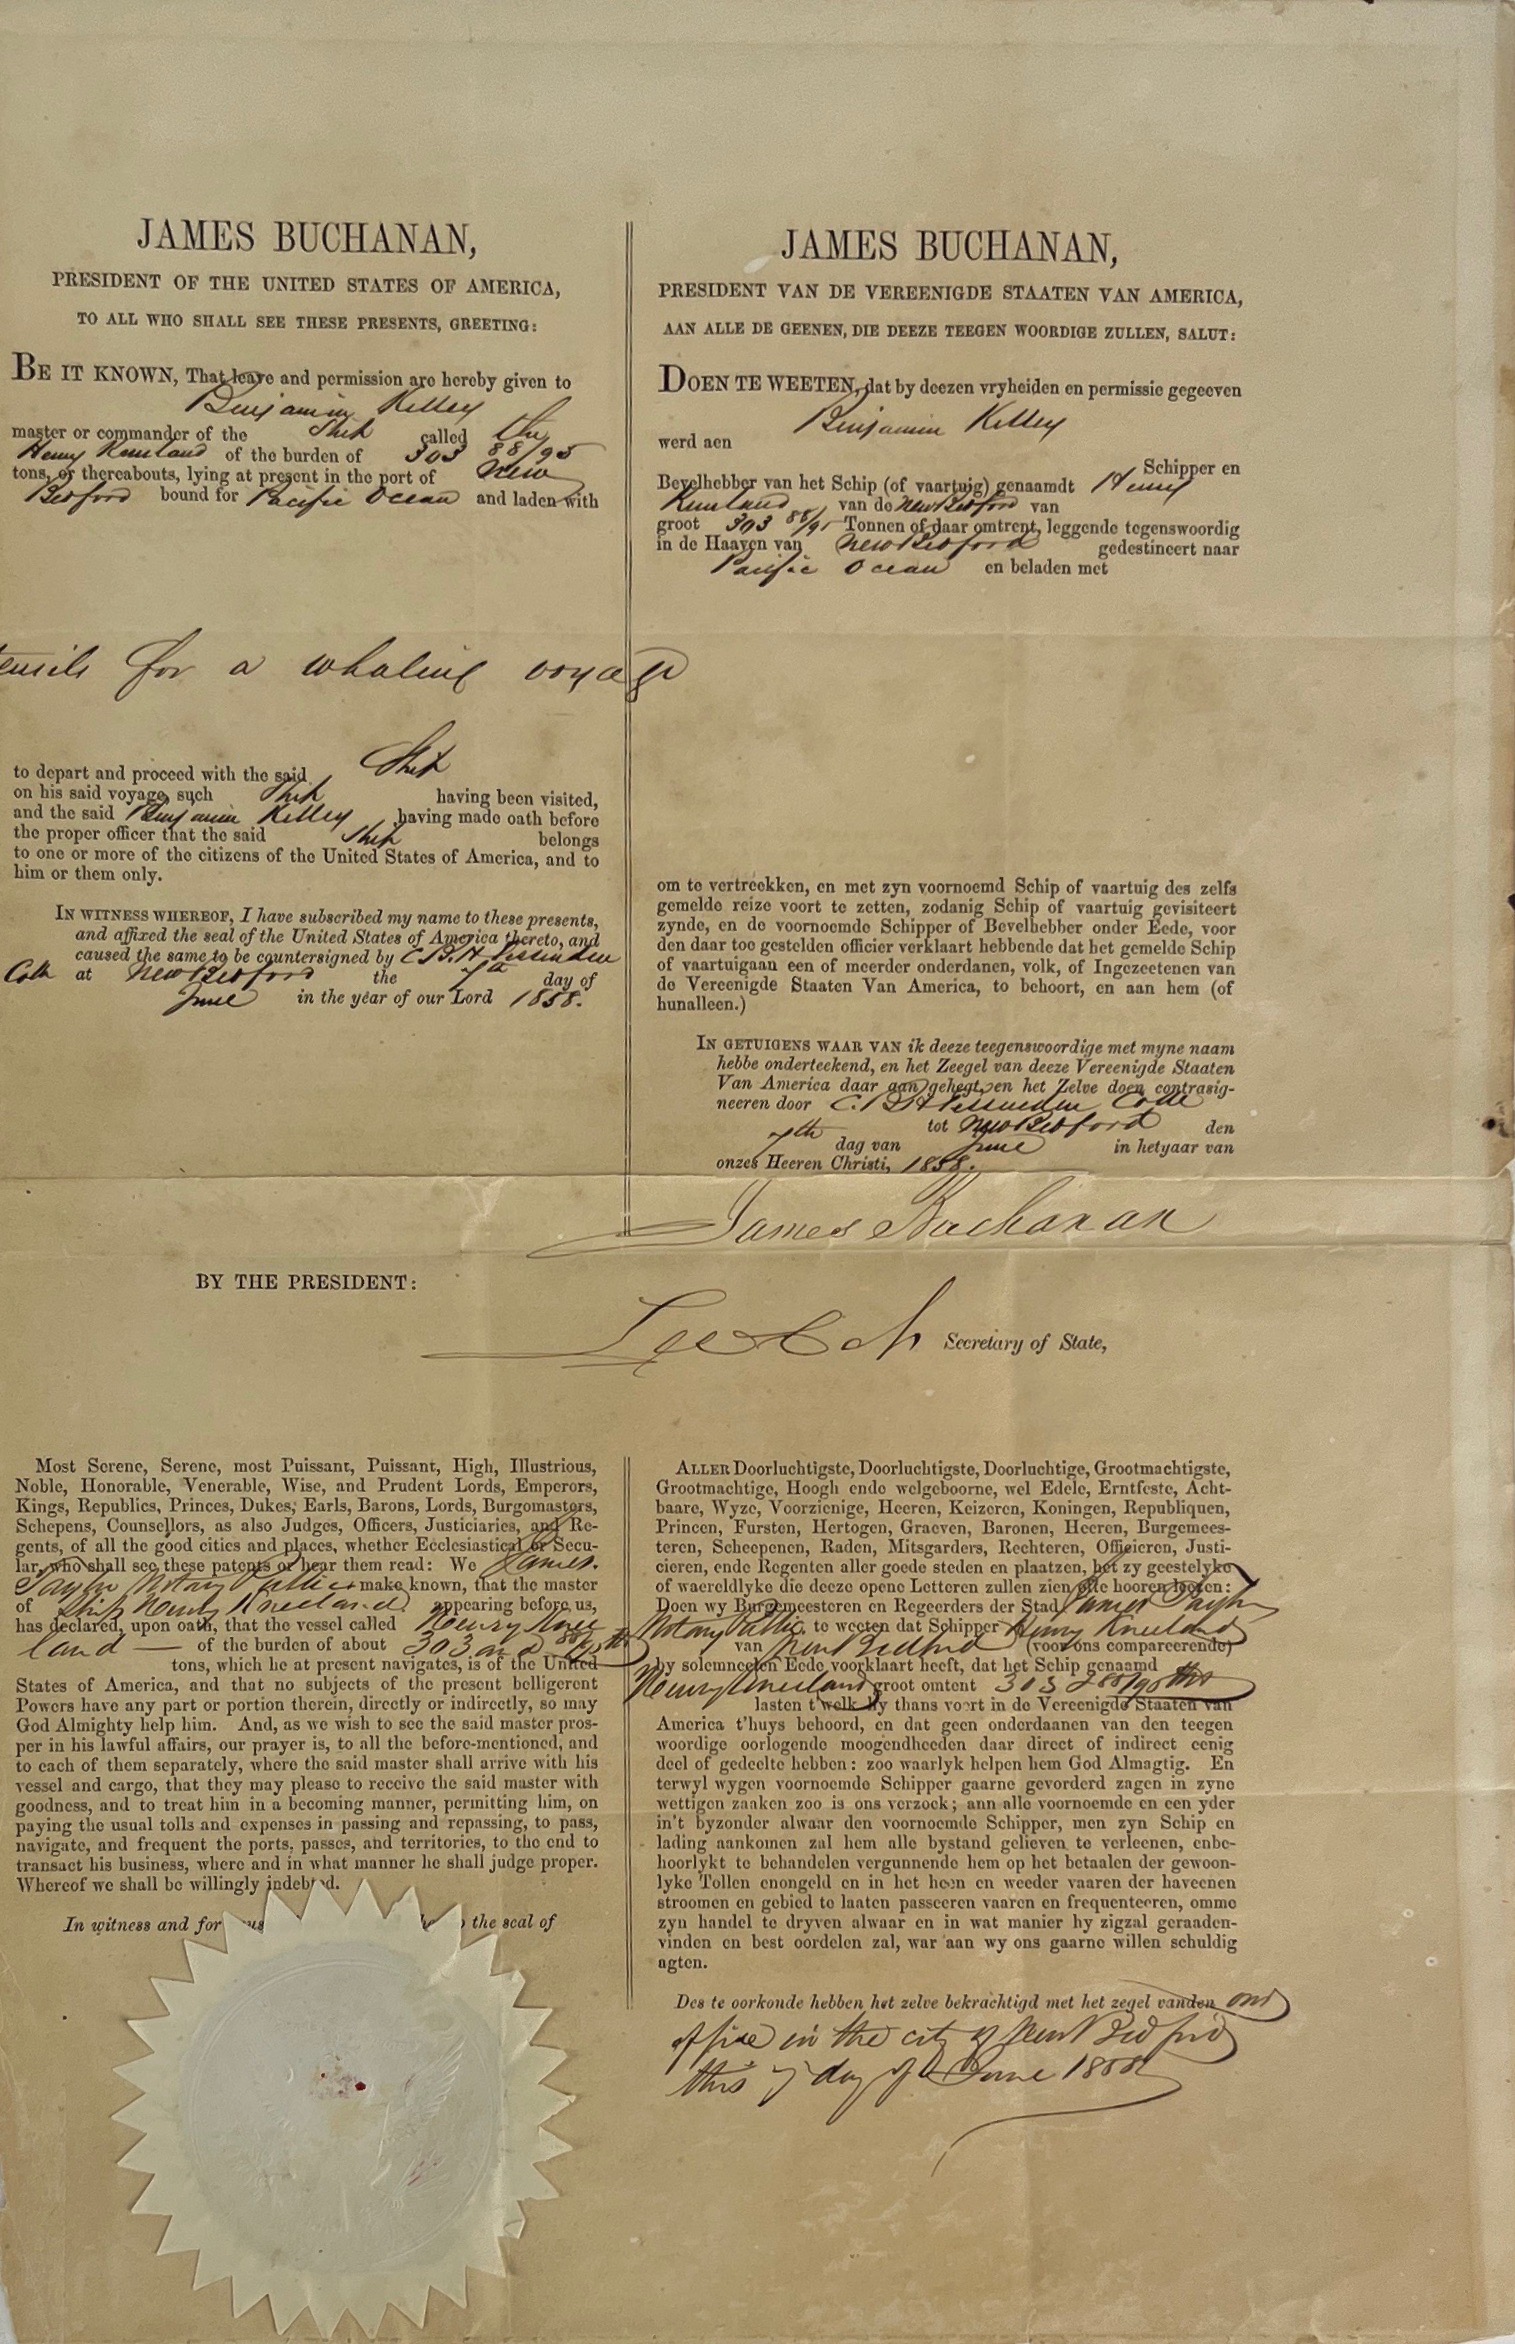 JAMES BUCHANAN,
PRESIDENT OF THE UNITED STATES OF AMERICA,
TO ALL WHO SHALL SEE THESE PRESENTS, GREETING:
BE IT KNOWN, That leave and permission are hereby given to
Benjamin Kelley
master or commander of the Ship called the
Henry Kneeland of the burden of 303 88/95
tons, or thereabouts, lying at present in the port of New
Bedford bound for Pacific Ocean and laden with
for a whaling voyage
to depart and proceed with the said Ship
on his said voyage, such Ship having been visited,
and the said Benjamin Kelley having made oath before
the proper officer that the said Ship belongs
to one or more of the citizens of the United States of America, and to
him or them only.
IN WITNESS WHEREOF, I have subscribed my name to these presents,
and affixed the seal of the United States of America thereto, and
caused the same to be countersigned by C. B. H. Fessenden
Coll at New Bedford the 7th day of
June in the year of our Lord 1858.
JAMES BUCHANAN,
PRESIDENT VAN DE VEREENIGDE STAATEN VAN AMERICA,
AAN ALLE DE GEENEN, DIE DEEZE TEEGEN WOORDIGE ZULLEN, SALUT:
DOEN TE WEETEN, dat by deezen vryheiden en permissie gegeeven
Benjamin Kelley
werd aen
Schipper en
Bevelhebber van het Schip (of vaartuig) genaamdt Henry
Kneeland van de New Bedford van
groot 303 88/95 Tonnen of daar omtrent, leggende tegenswoordig
in de Haaven van New Bedford gedestineert naar
Pacific Ocean en beladen met
om te vertreekken, en met zyn voornoemd Schip of vaartuig des zelfs
gemelde reize voort te zetten, zodanig Schip of vaartuig gevisiteert
zynde, en de voornoemde Schipper of Bevelhebber onder Eede, voor
den daar toe gestelden officier verklaart hebbende dat het gemelde Schip
of vaartuigaan een of meerder onderdanen, volk, of Ingezeetenen van
de Vereenigde Staaten Van America, to behoort, en aan hem (of
hunalleen.)
IN GETUIGENS WAAR VAN ik deeze teegenswoordige met myne naam
hebbe onderteekend, en het Zeegel van deeze Vereenigde Staaten
Van America daar aan gehegt, en het Zelve doen contrasig-
neeren door C. B. H. Fessenden Coll
tot New Bedford den
7th dag van June in hetyaar van
onzes Heeren Christi, 1858.
James Buchanan
BY THE PRESIDENT:
Secretary of State,
Most Serene, Serene, most Puissant, Puissant, High, Illustrious,
Noble, Honorable, Venerable, Wise, and Prudent Lords, Emperors,
Kings, Republics, Princes, Dukes, Earls, Barons, Lords, Burgomasters,
Schepens, Counsellors, as also Judges, Officers, Justiciaries, and Re-
gents, of all the good cities and places, whether Ecclesiastical or Secu-
lar, who shall see these patents or hear them read: We James
Taylor Notary Public make known, that the master
of Ship Henry Kneeland appearing before us,
has declared, upon oath, that the vessel called Henry Knee
land of the burden of about 303 and 88/95ths
tons, which he at present navigates, is of the United
States of America, and that no subjects of the present belligerent
Powers have any part or portion therein, directly or indirectly, so may
God Almighty help him. And, as we wish to see the said master pros-
per in his lawful affairs, our prayer is, to all the before-mentioned, and
to each of them separately, where the said master shall arrive with his
vessel and cargo, that they may please to receive the said master with
goodness, and to treat him in a becoming manner, permitting him, on
paying the usual tolls and expenses in passing and repassing, to pass,
navigate, and frequent the ports, passes, and territories, to the end to
transact his business, where and in what manner he shall judge proper.
Whereof we shall be willingly indebted.
In witness and for the seal of
ALLER Doorluchtigste, Doorluchtigste, Doorluchtige, Grootmachtigste,
Grootmachtige, Hoogh ende welgeboorne, wel Edele, Erntfeste, Acht-
baare, Wyze, Voorzienige, Heeren, Keizeren, Koningen, Republiquen,
Princen, Fursten, Hertogen, Graeven, Baronen, Heeren, Burgemees-
teren, Scheepenen, Raden, Mitsgarders, Rechteren, Officieren, Justi-
cieren, ende Regenten aller goede steden en plaatzen, het zy geestelyke
of waereldlyke die deeze opene Letteren zullen zien ofte hooren leezen:
Doen wy Burgemeesteren en Regeerders der Stad James Taylor
Notary Public te weeten dat Schipper Henry Kneeland
van New Bedford (voor ons compareerende)
by solemneelen Eede voorklaart heeft, dat het Schip genaamd
Henry Kneeland groot omtent 303 & 88/95ths
lasten t'welk hy thans voert in de Vereenigde Staaten van
America t'huys behoord, en dat geen onderdaanen van den teegen
woordige oorlogende moogendheeden daar direct of indirect eenig
deel of gedeelte hebben: zoo waarlyk helpen hem God Almagtig. En
terwyl wygen voornoemde Schipper gaarne gevorderd zagen in zyne
wettigen zaaken zoo is ons verzoek; ann alle voornoemde en een yder
in't byzonder alwaar den voornoemde Schipper, men zyn Schip en
lading aankomen zal hem alle bystand gelieven te verleenen, enbe-
hoorlykt te behandelen vergunnende hem op het betaalen der gewoon-
lyke Tollen enongeld en in het heen en weeder vaaren der haveenen
stroomen en gebied te laaten passeeren vaaren en frequenteeren, omme
zyn handel te dryven alwaar en in wat manier hy zigzal geraaden-
vinden en best oordelen zal, war aan wy ons gaarne willen schuldig
agten.
Des te oorkonde hebben het zelve bekrachtigd met het zegel vanden our
office in the city of New Bedford
this 7 day of June 1858